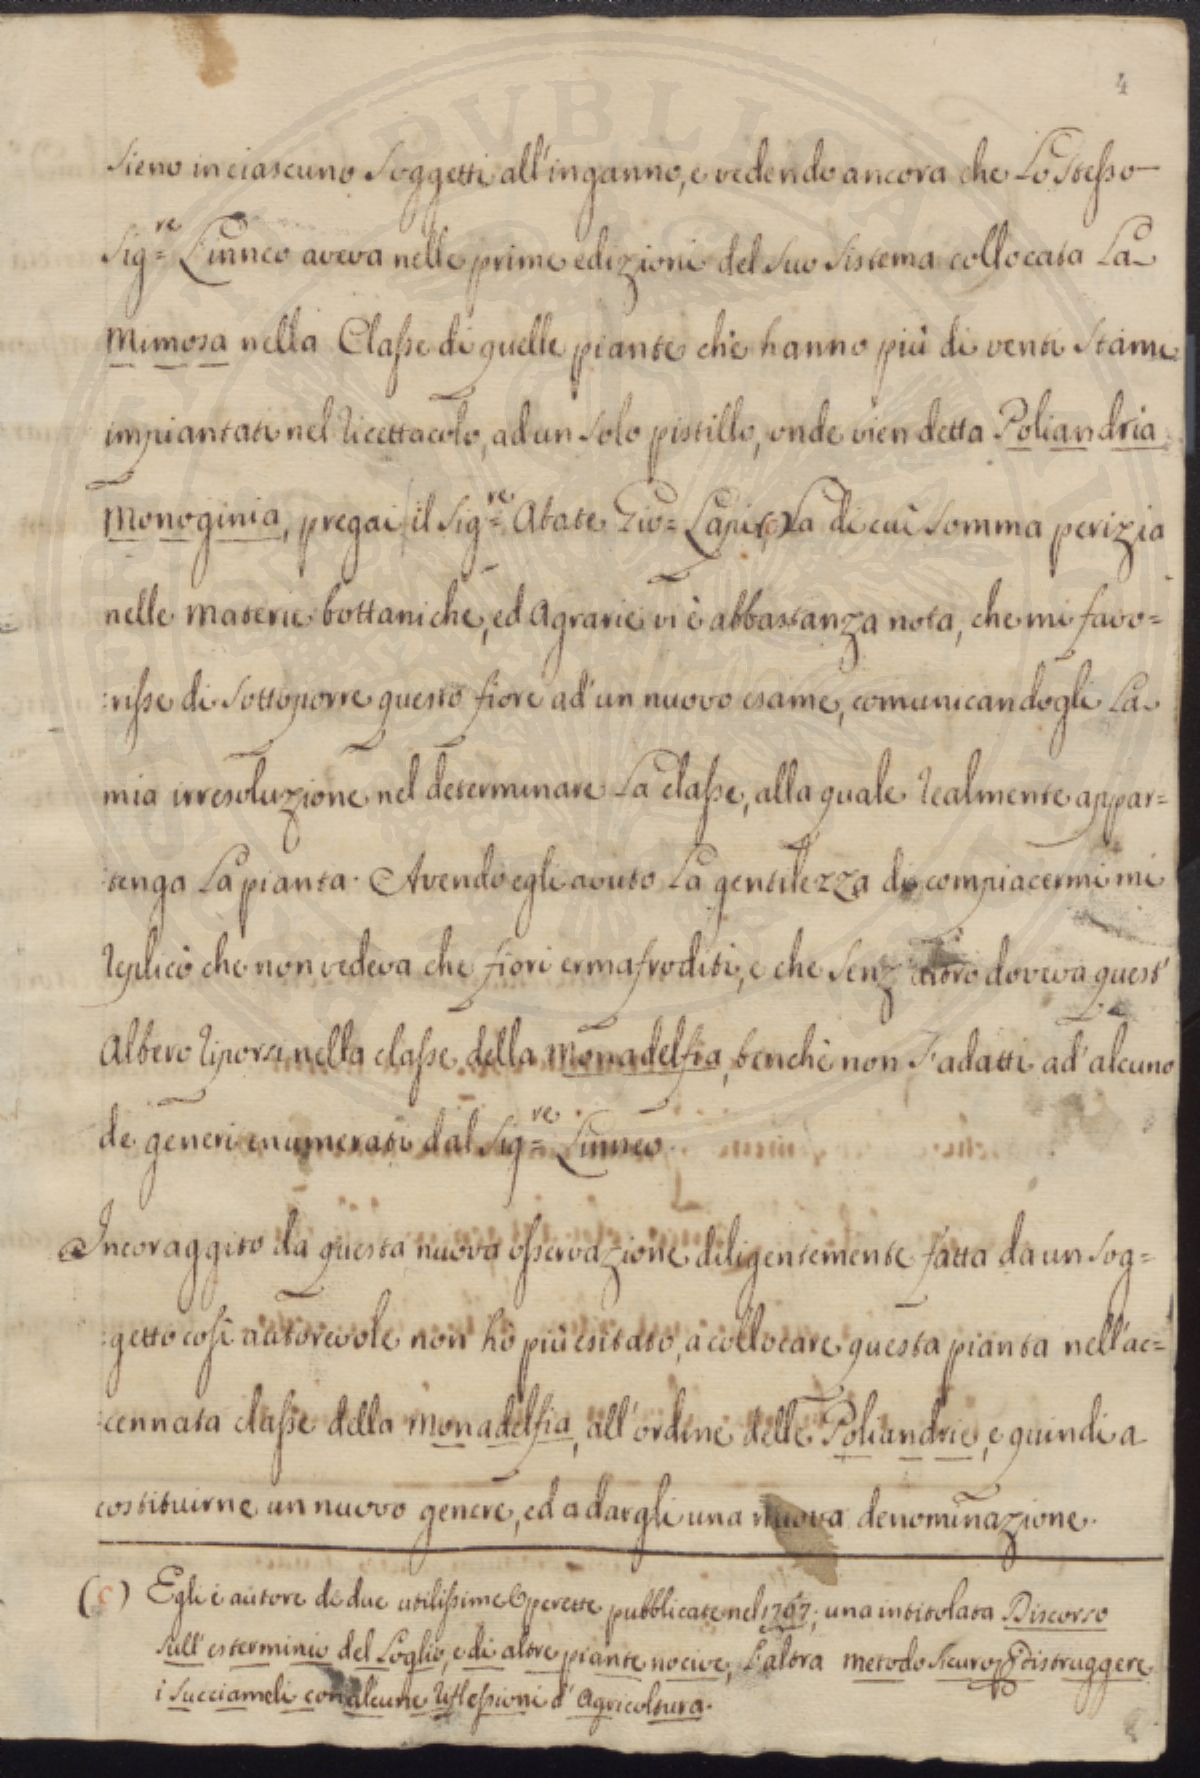 4
sieno in ciascuno soggetti all'inganno, e vedendo ancora che Lo stesso
Sig.re Linneo aveva nelle prime edizioni del suo sistema collocata La
Mimosa nella Classe di quelle piante che hanno più di venti stami
impiantati nel ricettacolo, ad un solo pistillo, onde vien detta Poliandria
Monoginia, pregai il Sig.re Abate Gio= Lapi (c) La di cui somma perizia
nelle materie bottaniche, ed Agrarie vi è abbastanza nota, che mi favo=
:risse di sottoporre questo fiore ad'un nuovo esame, comunicandogli La
mia irresoluzione nel determinare La classe, alla quale realmente appar=
:tenga La pianta. Avendo egli avuto La gentilezza di compiacermi mi
replicò che non vedeva che fiori ermafroditi, e che senz'altro doveva quest'
Albero riporsi nella classe della Monadelfia, benchè non s'adatti ad'alcuno
de generi enumerati dal Sig.re Linneo.
Incoraggito da questa nuova osservazione diligentemente fatta da un sog=
:getto così autorevole non hò più esitato, a collocare questa pianta nell'ac=
:cennata classe della Monadelfia, all'ordine delle Poliandrie, e quindi a
costituirne un nuovo genere, ed a dargli una nuova denominazione.
(c) Egli è autore di due utilissime Operette pubblicate nel 1767; una intitolata Discorso
sull'esterminio del Loglio, e di altre piante nocive, L'altra metodo sicuro p distruggere
i succiameli con alcune riflessioni d'Agricoltura.